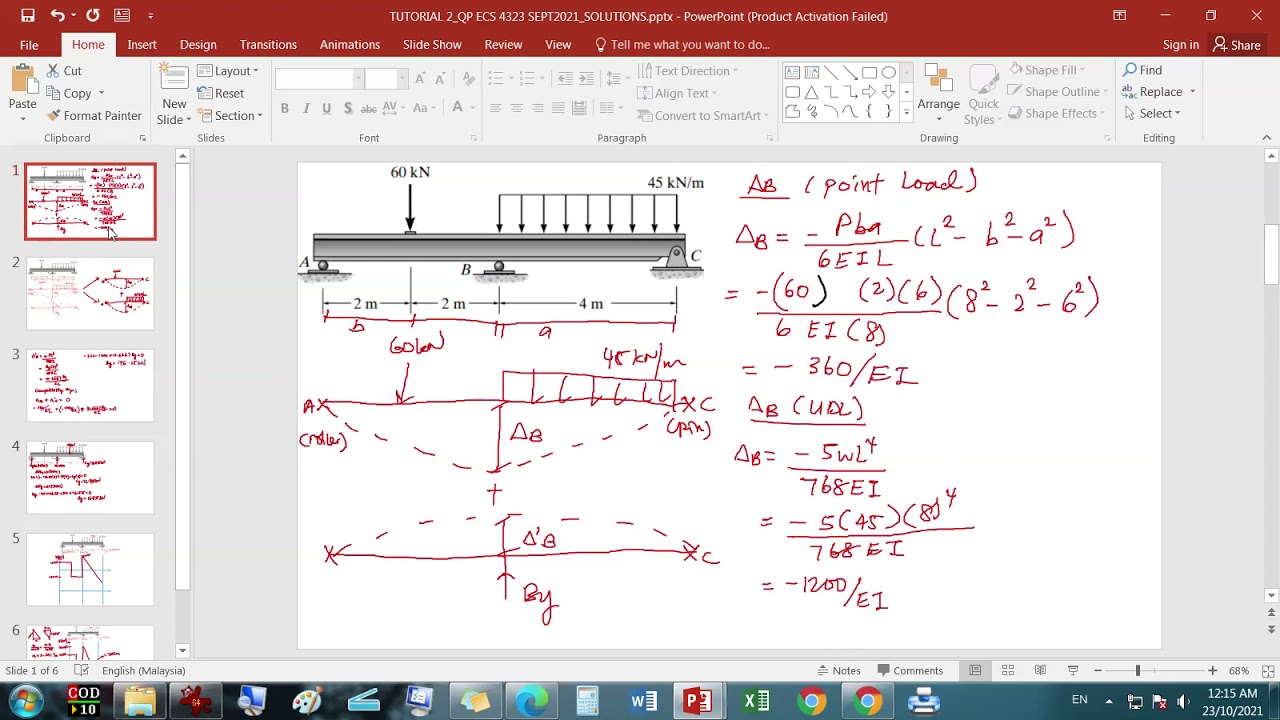 TUTORIAL 2_QP ECS 4323 SEPT2021_SOLUTIONS.pptx - PowerPoint (Product Activation Failed)
File Home Insert Design Transitions Animations Slide Show Review View Tell me what you want to do... Sign in Share
Paste
Cut
Copy
Format Painter
Clipboard
New Slide
Layout
Reset
Section
Slides
B I U S abc AV Aa A
Font
Text Direction
Align Text
Convert to SmartArt
Paragraph
Arrange
Quick Styles
Shape Fill
Shape Outline
Shape Effects
Drawing
Find
Replace
Select
Editing
1
2
3
4
5
6
60 kN
45 kN/m
A
B
C
2 m
2 m
4 m
b
a
60kN
45 kN/m
A
C
(roller)
(pin)
ΔB
+
Δ'B
C
By
ΔB (point load)
ΔB = - Pba / 6EIL (L² - b² - a²)
= -(60) (2)(6) / 6 EI (8) (8² - 2² - 6²)
= - 360/EI
ΔB (UDL)
ΔB = - 5wL⁴ / 768EI
= - 5(45)(8)⁴ / 768 EI
= -1200/EI
Slide 1 of 6 English (Malaysia) Notes Comments 68%
COD
10
64
EN
12:15 AM
23/10/2021